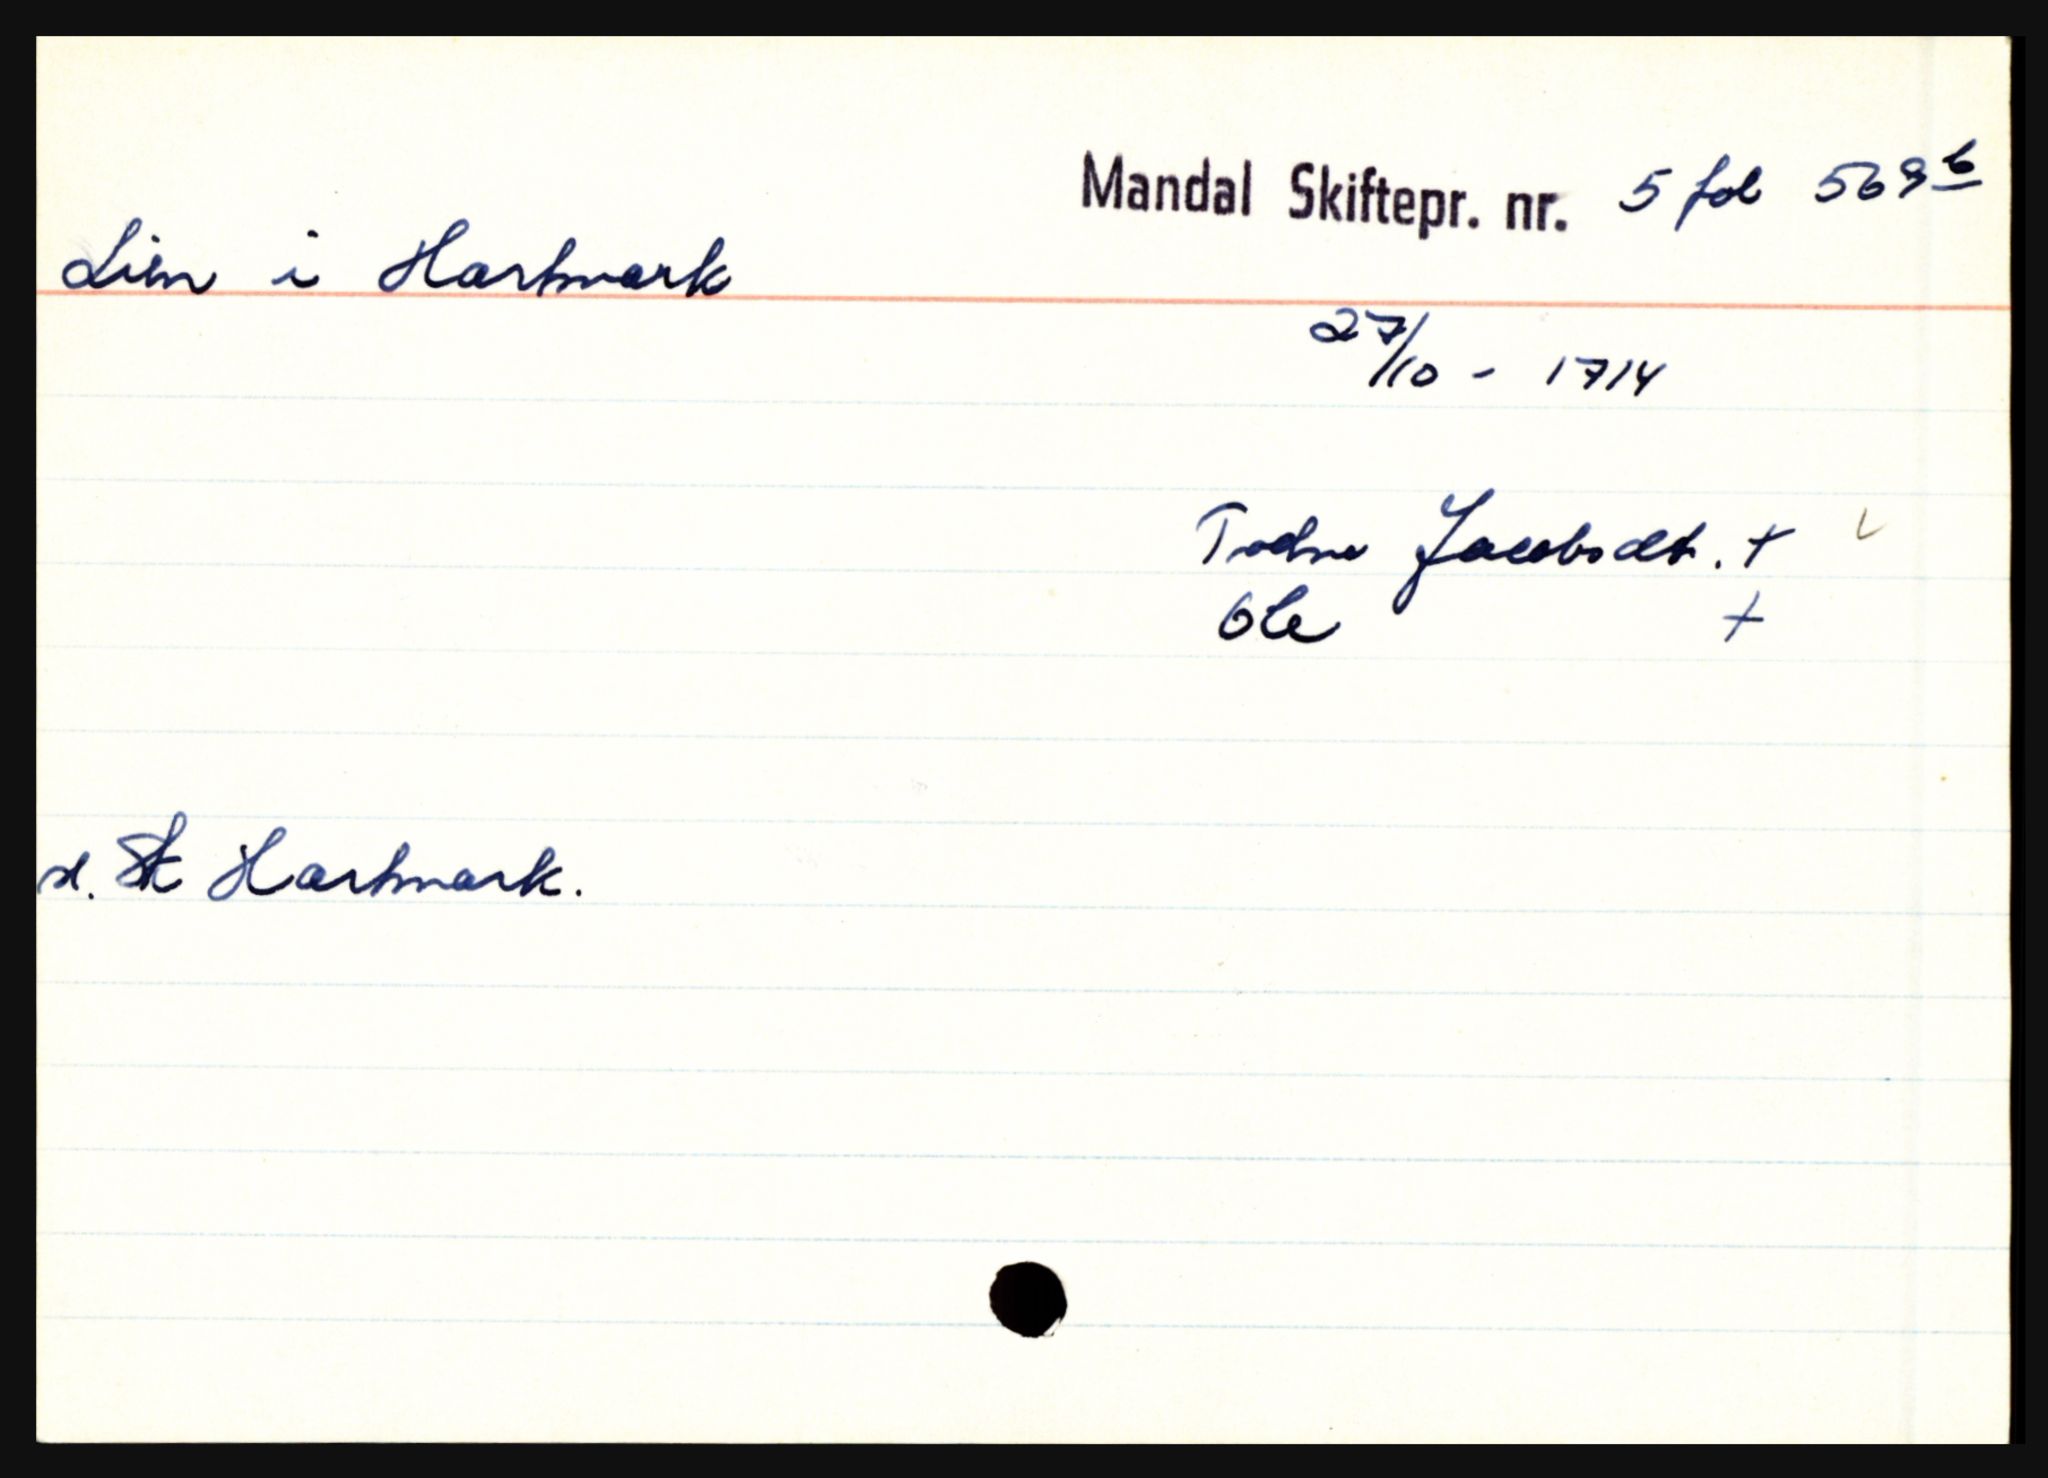 Mandal Skiftepr. nr. 5 fol 569 b
Lien i Hartmark
27/10 - 1714
Todne Jacobsdt. +
Ole +
sl. St Hartmark.